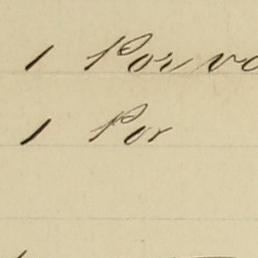 1 Por
1 Por